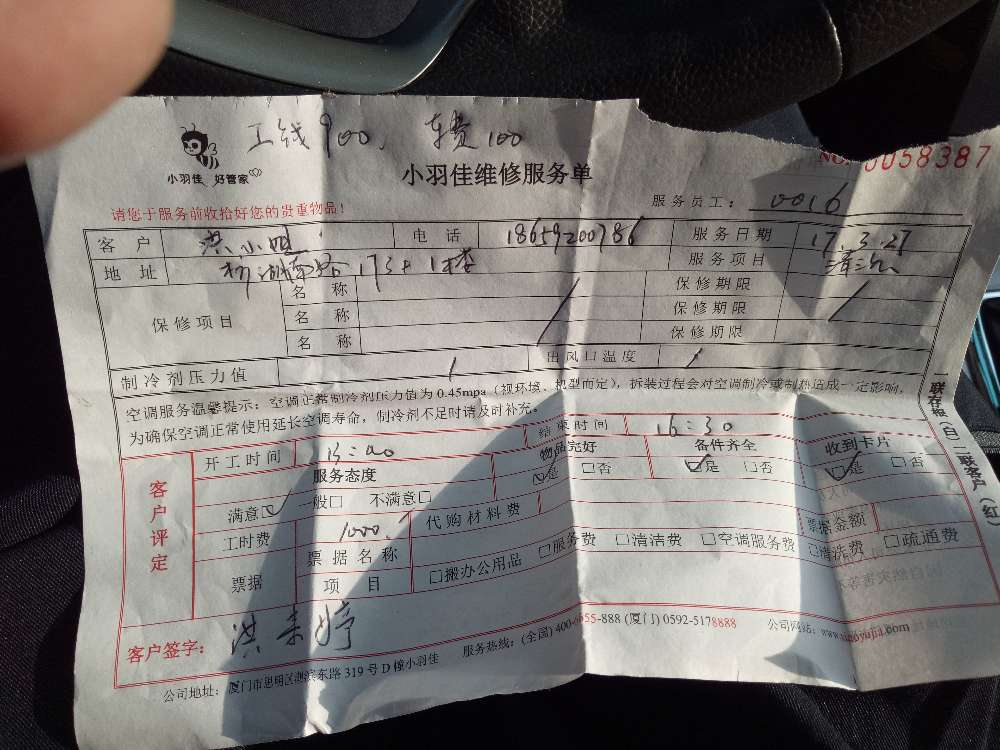 工钱900、车费100
小羽佳 好管家
小羽佳维修服务单
NO. 0058387
请您于服务前收拾好您的贵重物品！
服务员工： 0016
客户 洪小姐 电话 18659200786 服务日期 17.3.27
地址 服务项目
保修项目 名称 保修期限
名称 保修期限
名称 保修期限
制冷剂压力值 出风口温度
空调服务温馨提示：空调正常制冷剂压力值为0.45mpa（视环境、机型而定），拆装过程会对空调制冷或制热造成一定影响，
为确保空调正常使用延长空调寿命，制冷剂不足时请及时补充。
一联存根（白）二联客户（红）
客户评定
开工时间 结束时间 16:30
服务态度 物品完好 备件齐全 收到卡片
满意☑ 一般□ 不满意□ ☑是 □否 ☑是 □否 ☑是 □否
工时费 1000. 代购材料费 票据金额
票据 票据名称 项目
□搬办公用品 □服务费 □清洁费 □空调服务费 □清洗费 □疏通费
客户签字： 洪
公司地址：厦门市思明区湖滨东路319号D幢小羽佳 服务热线：(全国) 400-6655-888 (厦门) 0592-5178888 公司网站：www.xiaoyujia.com